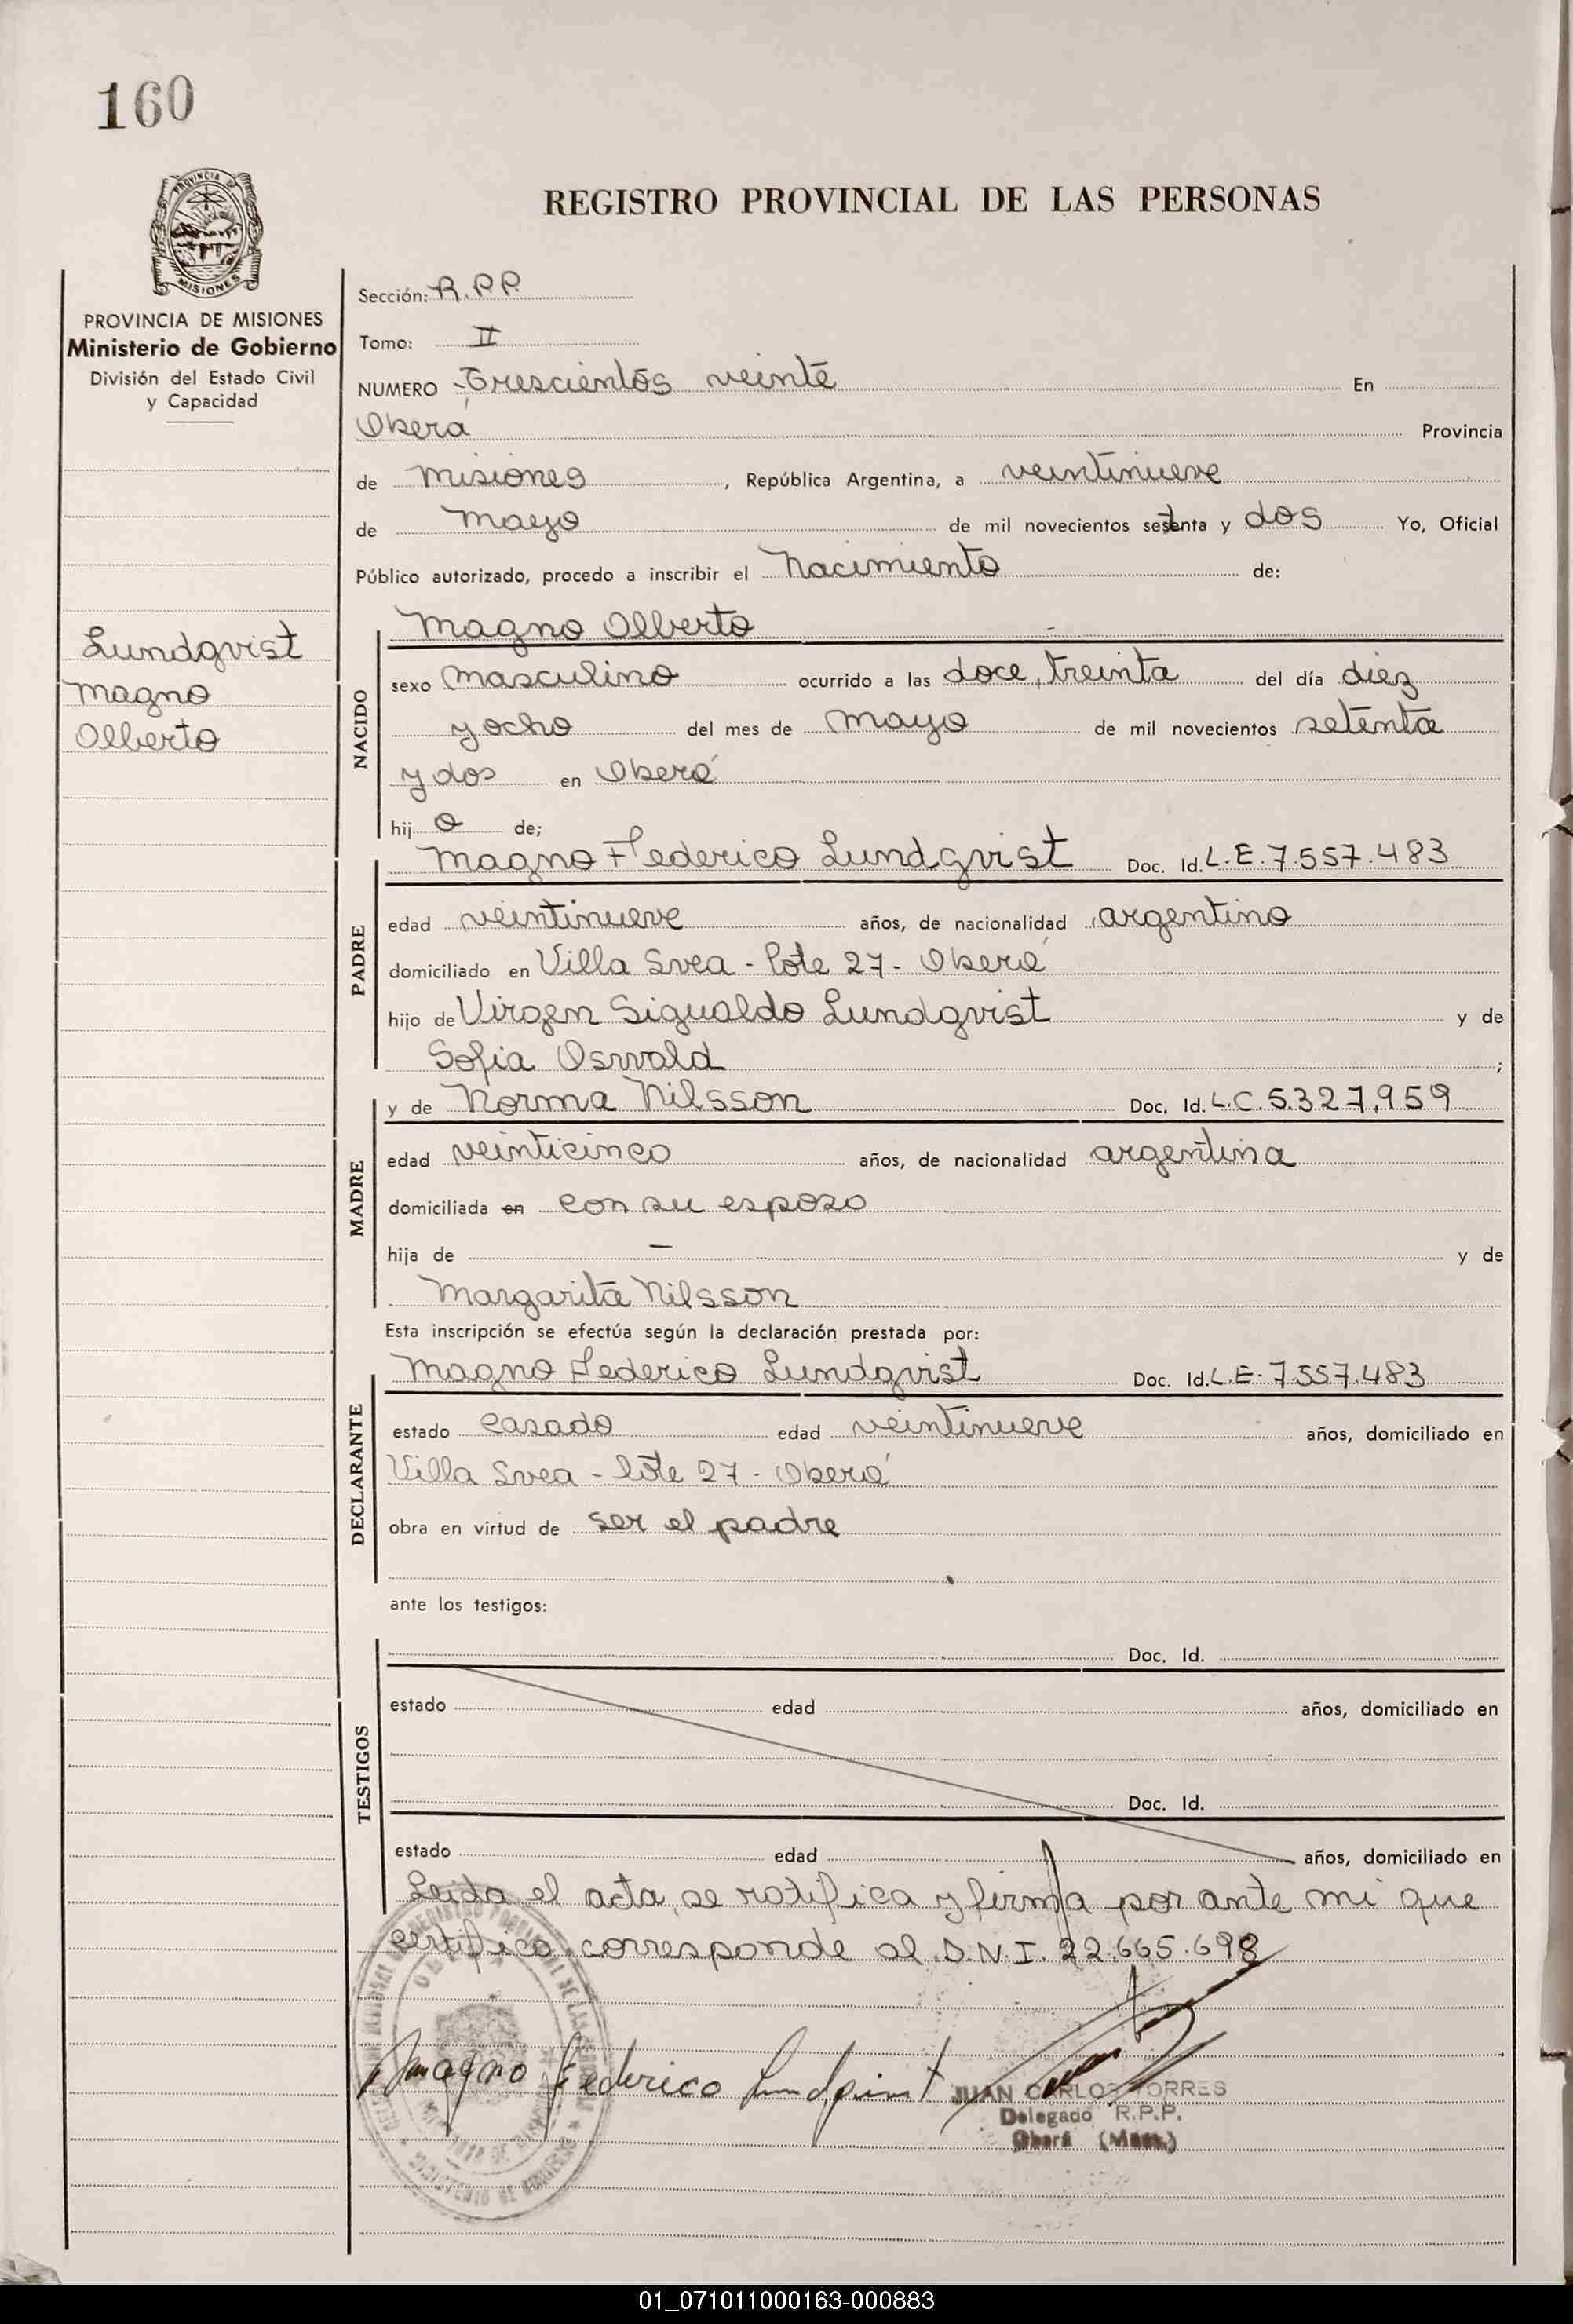 160
PROVINCIA DE
MISIONES
REGISTRO PROVINCIAL DE LAS PERSONAS
PROVINCIA DE MISIONES
Ministerio de Gobierno
División del Estado Civil
y Capacidad
Lundqvist
Magno
Olberto
Sección: R.P.P.
Tomo: II
NUMERO Trescientos veinte En
Oberá Provincia
de Misiones, República Argentina, a veintinueve
de Mayo de mil novecientos setenta y dos Yo, Oficial
Público autorizado, procedo a inscribir el Nacimiento de:
NACIDO
Magno Olberto
sexo masculino ocurrido a las doce, treinta del día diez
y ocho del mes de Mayo de mil novecientos setenta
y dos en Oberá
hijo de;
PADRE
Magno Federico Lundqvist Doc. Id. L.E. 7.557.483
edad veintinueve años, de nacionalidad argentino
domiciliado en Villa Svea - lote 27 - Oberá
hijo de Virgen Sigualdo Lundqvist y de
Sofia Oswald;
MADRE
y de Norma Nilsson Doc. Id. L.C. 5.327.959
edad veinticinco años, de nacionalidad argentina
domiciliada en con su esposo
hija de — y de
Margarita Nilsson
Esta inscripción se efectúa según la declaración prestada por:
DECLARANTE
Magno Federico Lundqvist Doc. Id. L.E. 7.557.483
estado casado edad veintinueve años, domiciliado en
Villa Svea - lote 27 - Oberá
obra en virtud de ser el padre
ante los testigos:
TESTIGOS
Doc. Id.
estado edad años, domiciliado en
Doc. Id.
estado edad años, domiciliado en
Leida el acta, se ratifica y firma por ante mi que
certifico, corresponde al D.N.I. 22.665.698
Magno Federico Lundqvist
JUAN CARLOS TORRES
Delegado R.P.P.
Oberá (Mnes.)
01_071011000163-000883